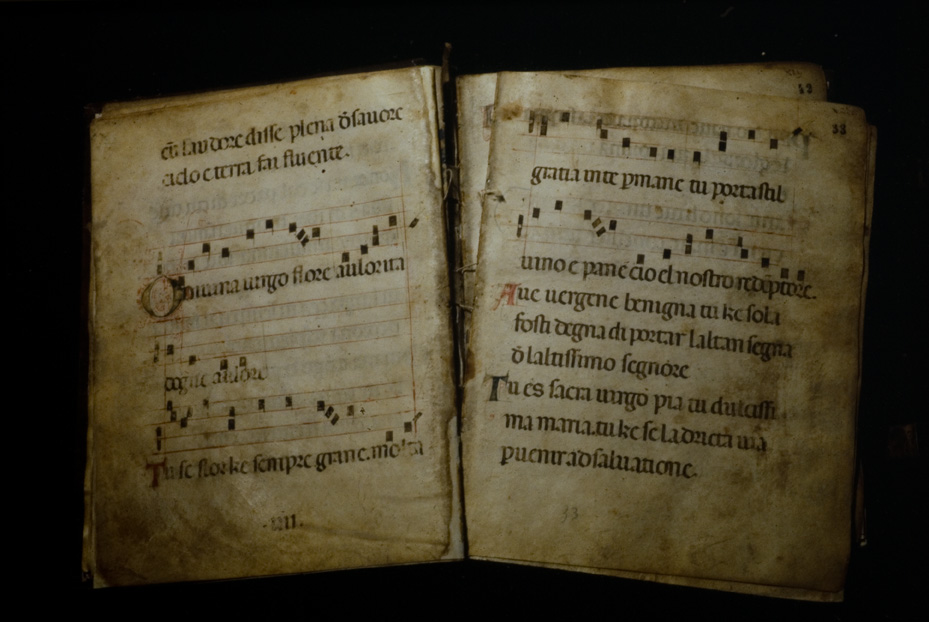 laudore disse plena d̄ savore
cielo e terra fai fluente.
O divina uirgo flore aulorita
dogne aulore
Tu se flor ke sempre grane. molta
.iiii.
53
33
gratia in te pmane tu portasti l
uino e pane cio el nostro redēptore.
Aue uergene benigna tu ke sola
fosti degna di portar laltan segna
d̄ laltissimo segnore
Tu es sacra uirgo pia tu dulcissi
ma maria. tu ke se la dricta uia
p uenir ad saluatione.
33